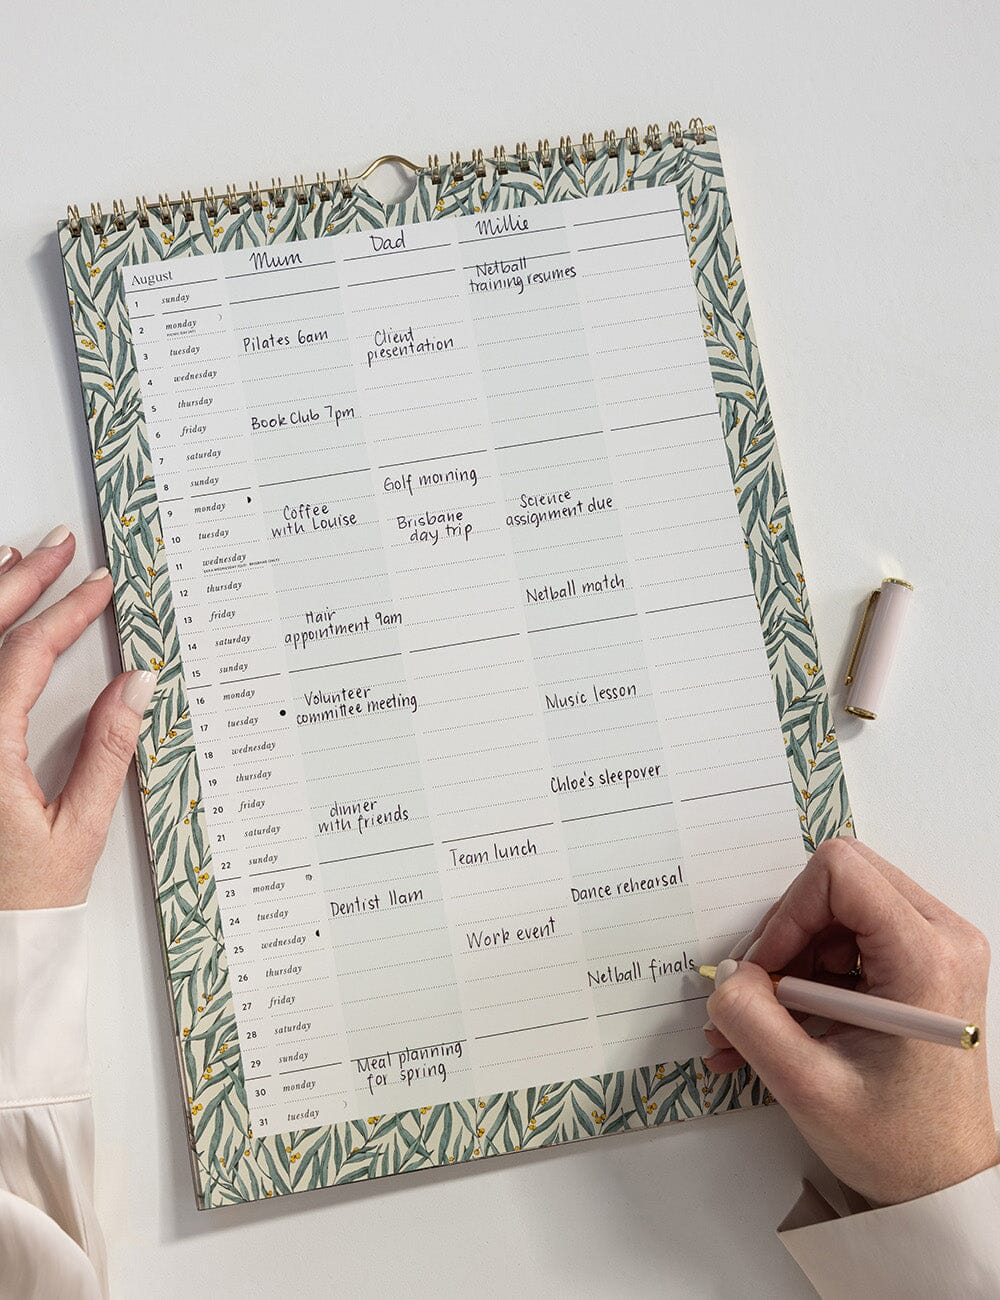 August Mum Dad Millie
1 sunday
2 monday
Netball
training resumes
3 tuesday Pilates 6am
4 wednesday
Client
presentation
5 thursday
6 friday Book Club 7pm
7 saturday
8 sunday
9 monday Golf morning
10 tuesday
Coffee
with Louise
11 wednesday
Brisbane
day trip
Science
assignment due
12 thursday
13 friday
14 saturday
Hair
appointment 9am
Netball match
15 sunday
16 monday
17 tuesday
Volunteer
committee meeting
18 wednesday Music lesson
19 thursday
20 friday
21 saturday
dinner
with friends
Chloe's sleepover
22 sunday
23 monday Team lunch
24 tuesday Dentist 11am
25 wednesday Dance rehearsal
26 thursday Work event
27 friday
28 saturday Netball finals
29 sunday
30 monday
Meal planning
for spring
31 tuesday